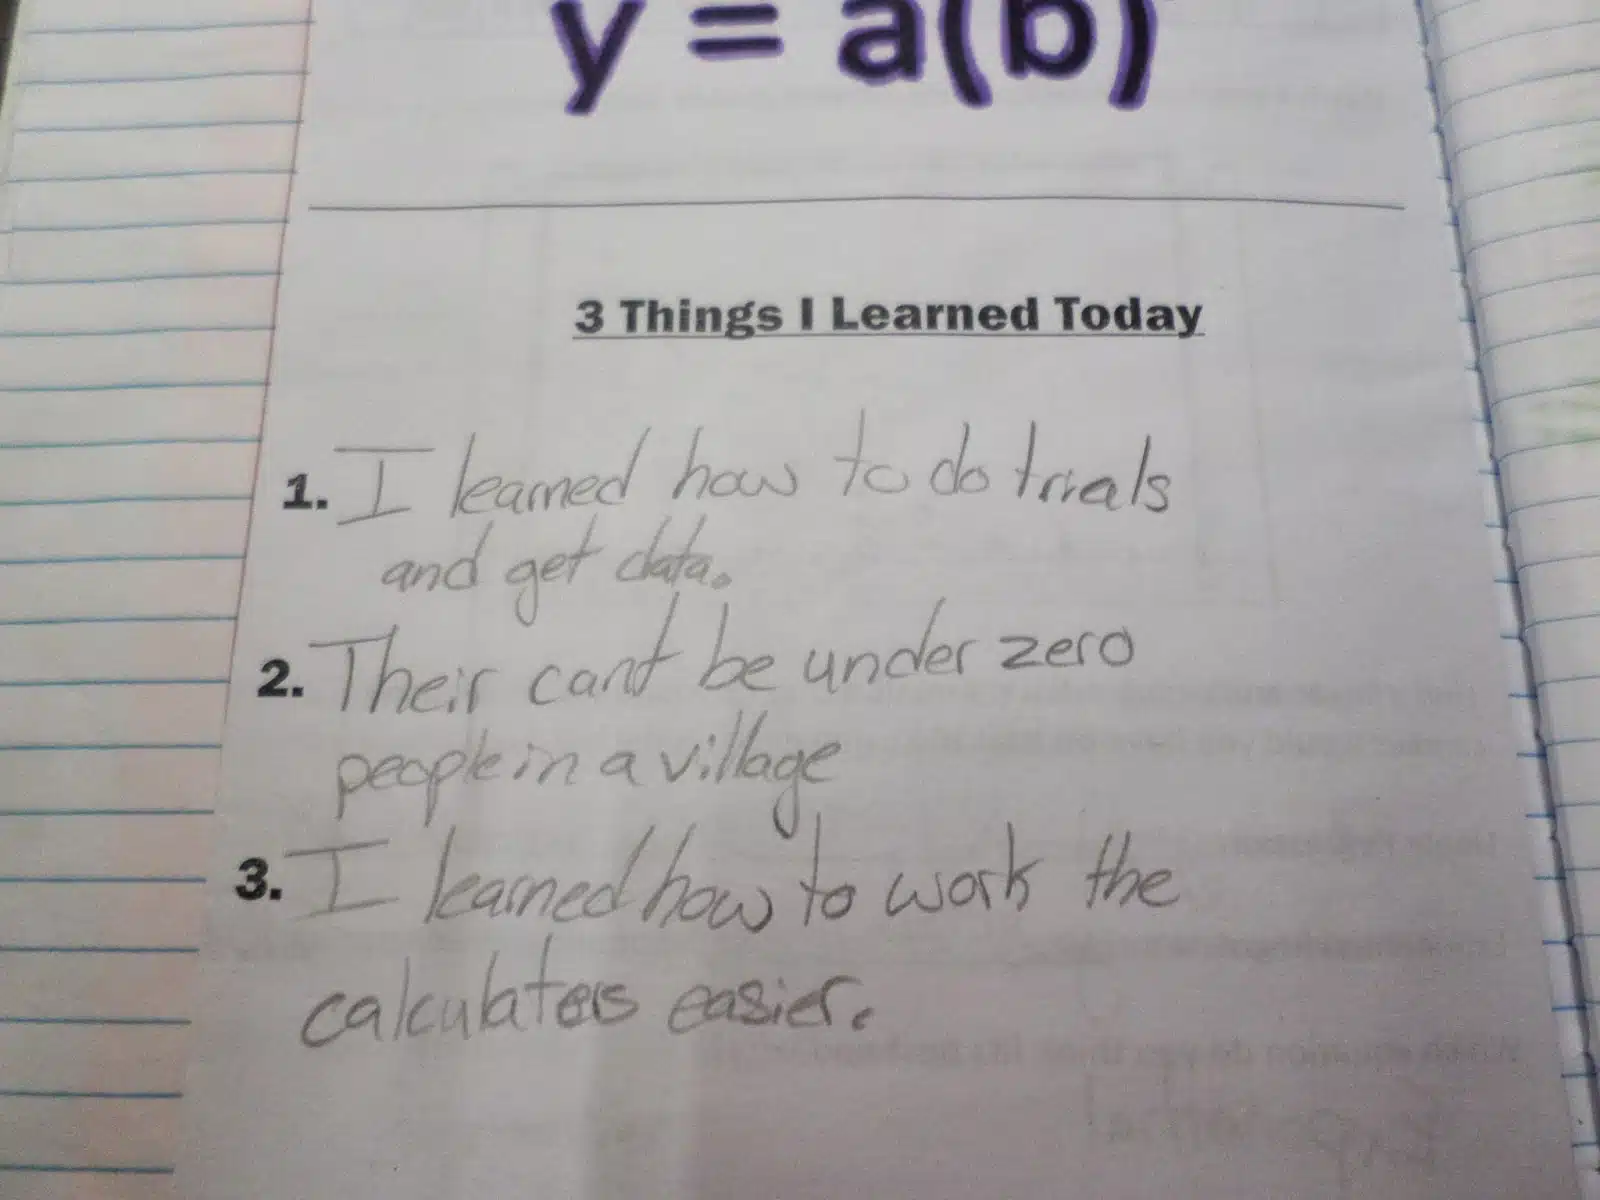 y = a(b)
3 Things I Learned Today
1. I learned how to do trials
and get data.
2. Their cant be under zero
people in a village
3. I learned how to work the
calculaters easier.